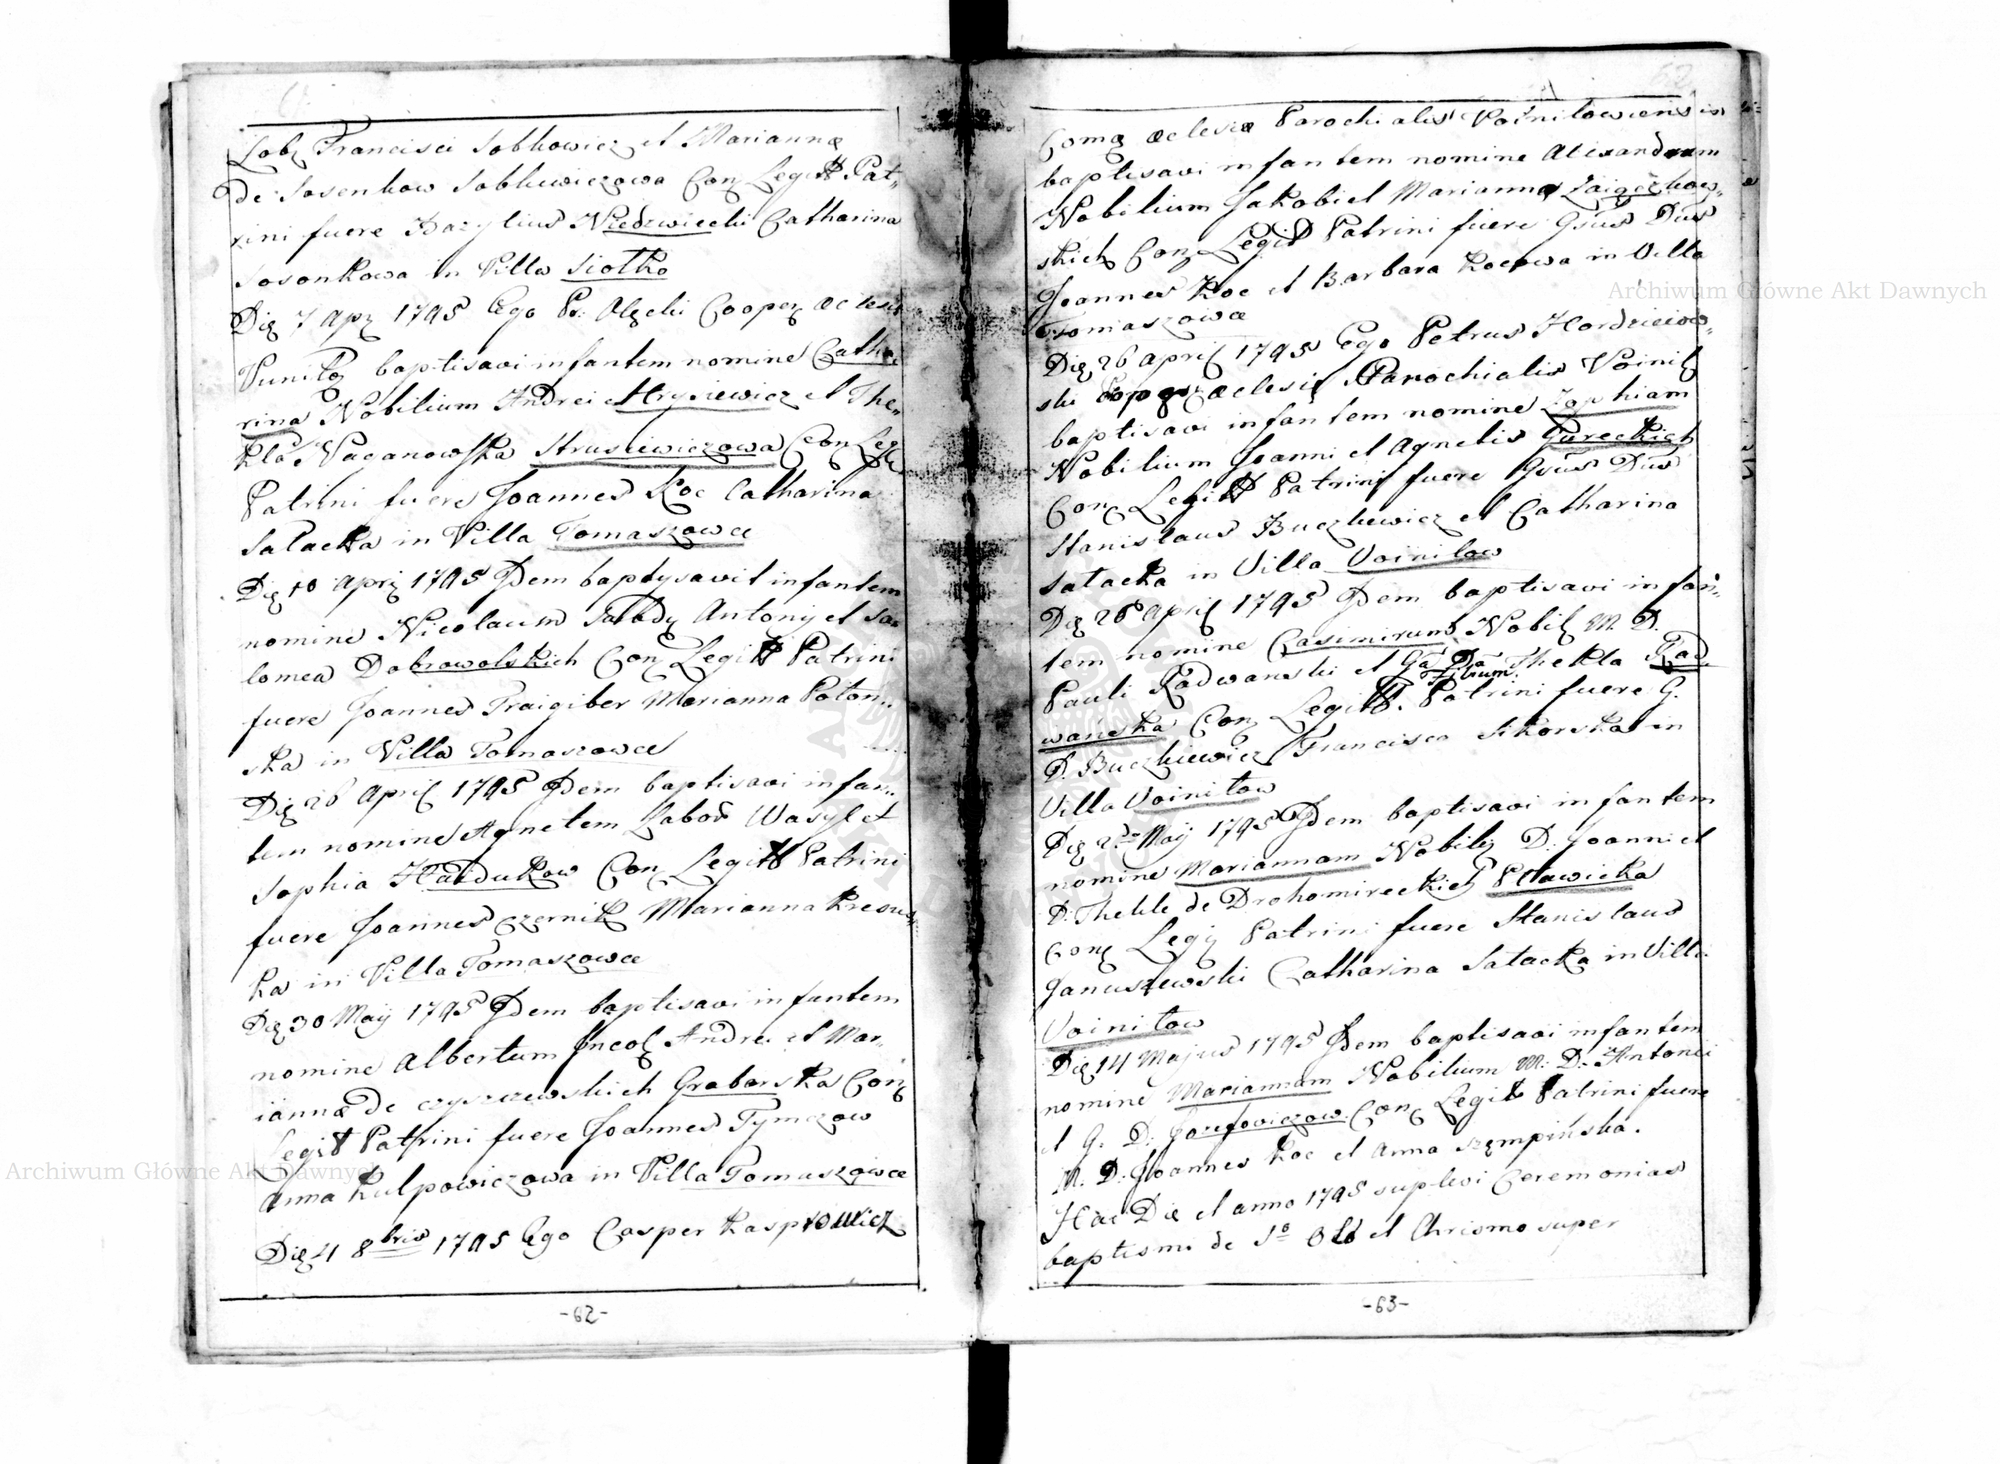 Francisci Sobkowicz et Mariannæ
de Sosenkow Sobkiewiczowa Conj Legitt Pat-
rini fuere Bazylius Niedzwiecki Catharina
Sosonkowa in Villa Siołko
Die 7 Apr 1795 Ego Pr. Cooper
baptisavi infantem nomine Catha
rina Nobilium Andrei Hrysiewicz et The,,
kla Naganowska Strusiewiczowa Con Leg
Patrini fuere Joannes Koc Catharina
Satacka in Villa Tomaszowce
Die 10 Apr 1795 Idem baptysavit infantem
nomine Nicolaum Antonij et Sa
lomea Dobrowolskich Con Legitt Patrini
fuere Joannes Fraigiber Marianna Poton,,
ska in Villa Tomaszowce
Die 26 April 1795 Idem baptisavi infan,,
tem nomine Agnetem Labor Wasyl et
Sophia Haidukow Con Legitt Patrini
fuere Joannes Czernik Marianna
ka in Villa Tomaszowce
Die 30 Maij 1795 Idem baptisavi infantem
nomine Albertum Incol Andrei et Mar,,
iannæ de czyszczewskich Grabarska Con
Legitt Patrini fuere Joannes Tymczow
Anna Kulpowiczowa in Villa Tomaszowce
Die 4 8bris 1795 Ego Casper Kasprowicz
-62-
Ecclesiæ Parochialis Woinilowiensis
baptisavi infantem nomine Alexandrum
Nobilium Jakobi et Marianna Zaiączkow,,
skich Con Legitt Patrini fuere Gsus Dus
Joannes Koc et Barbara Kocowa in Villa
Tomaszowce
Die 26 April 1795 Ego Petrus Hordzieiow,,
ski Parochialis Voinil
baptisavi infantem nomine Zophiam
Nobilium Joanni et Agnetis Gureckich
Con Legitt Patrini fuere Gsus Dus
Stanislaus Buczkiewicz et Catharina
Satacka in Villa Voinilow
Die 26 April 1795 Idem baptisavi infan,,
tem nomine Casimirum Nobil M. D.
Pauli Radwanski et Ga Da Thekla Rad
wańska Con Legitt. Patrini fuere G.
D. Buczkiewicz Francisca Sikorska in
Villa Voinilow
Die 2do Maij 1795 Idem baptisavi infantem
nomine Mariannam Nobil D. Joanni et
D. Thekle de Drohomireckich Pławicka
Con Legij Patrini fuere Stanislaus
Januszewski Catharina Satacka in Villa
Voinilow
Die 14 Majus 1795 Idem baptisavi infantem
nomine Mariannam Nobilium M. D. Antonii
et G. D. Jozefowiczow Con Legitt Patrini fuere
M. D. Joannes Koc et Anna Szempińska.
Hac Die et anno 1795 suplevi Ceremonias
baptismi de So Oleo et Chrismo super
-63-
Archiwum Główne Akt Dawnych
Archiwum Główne Akt Dawnych